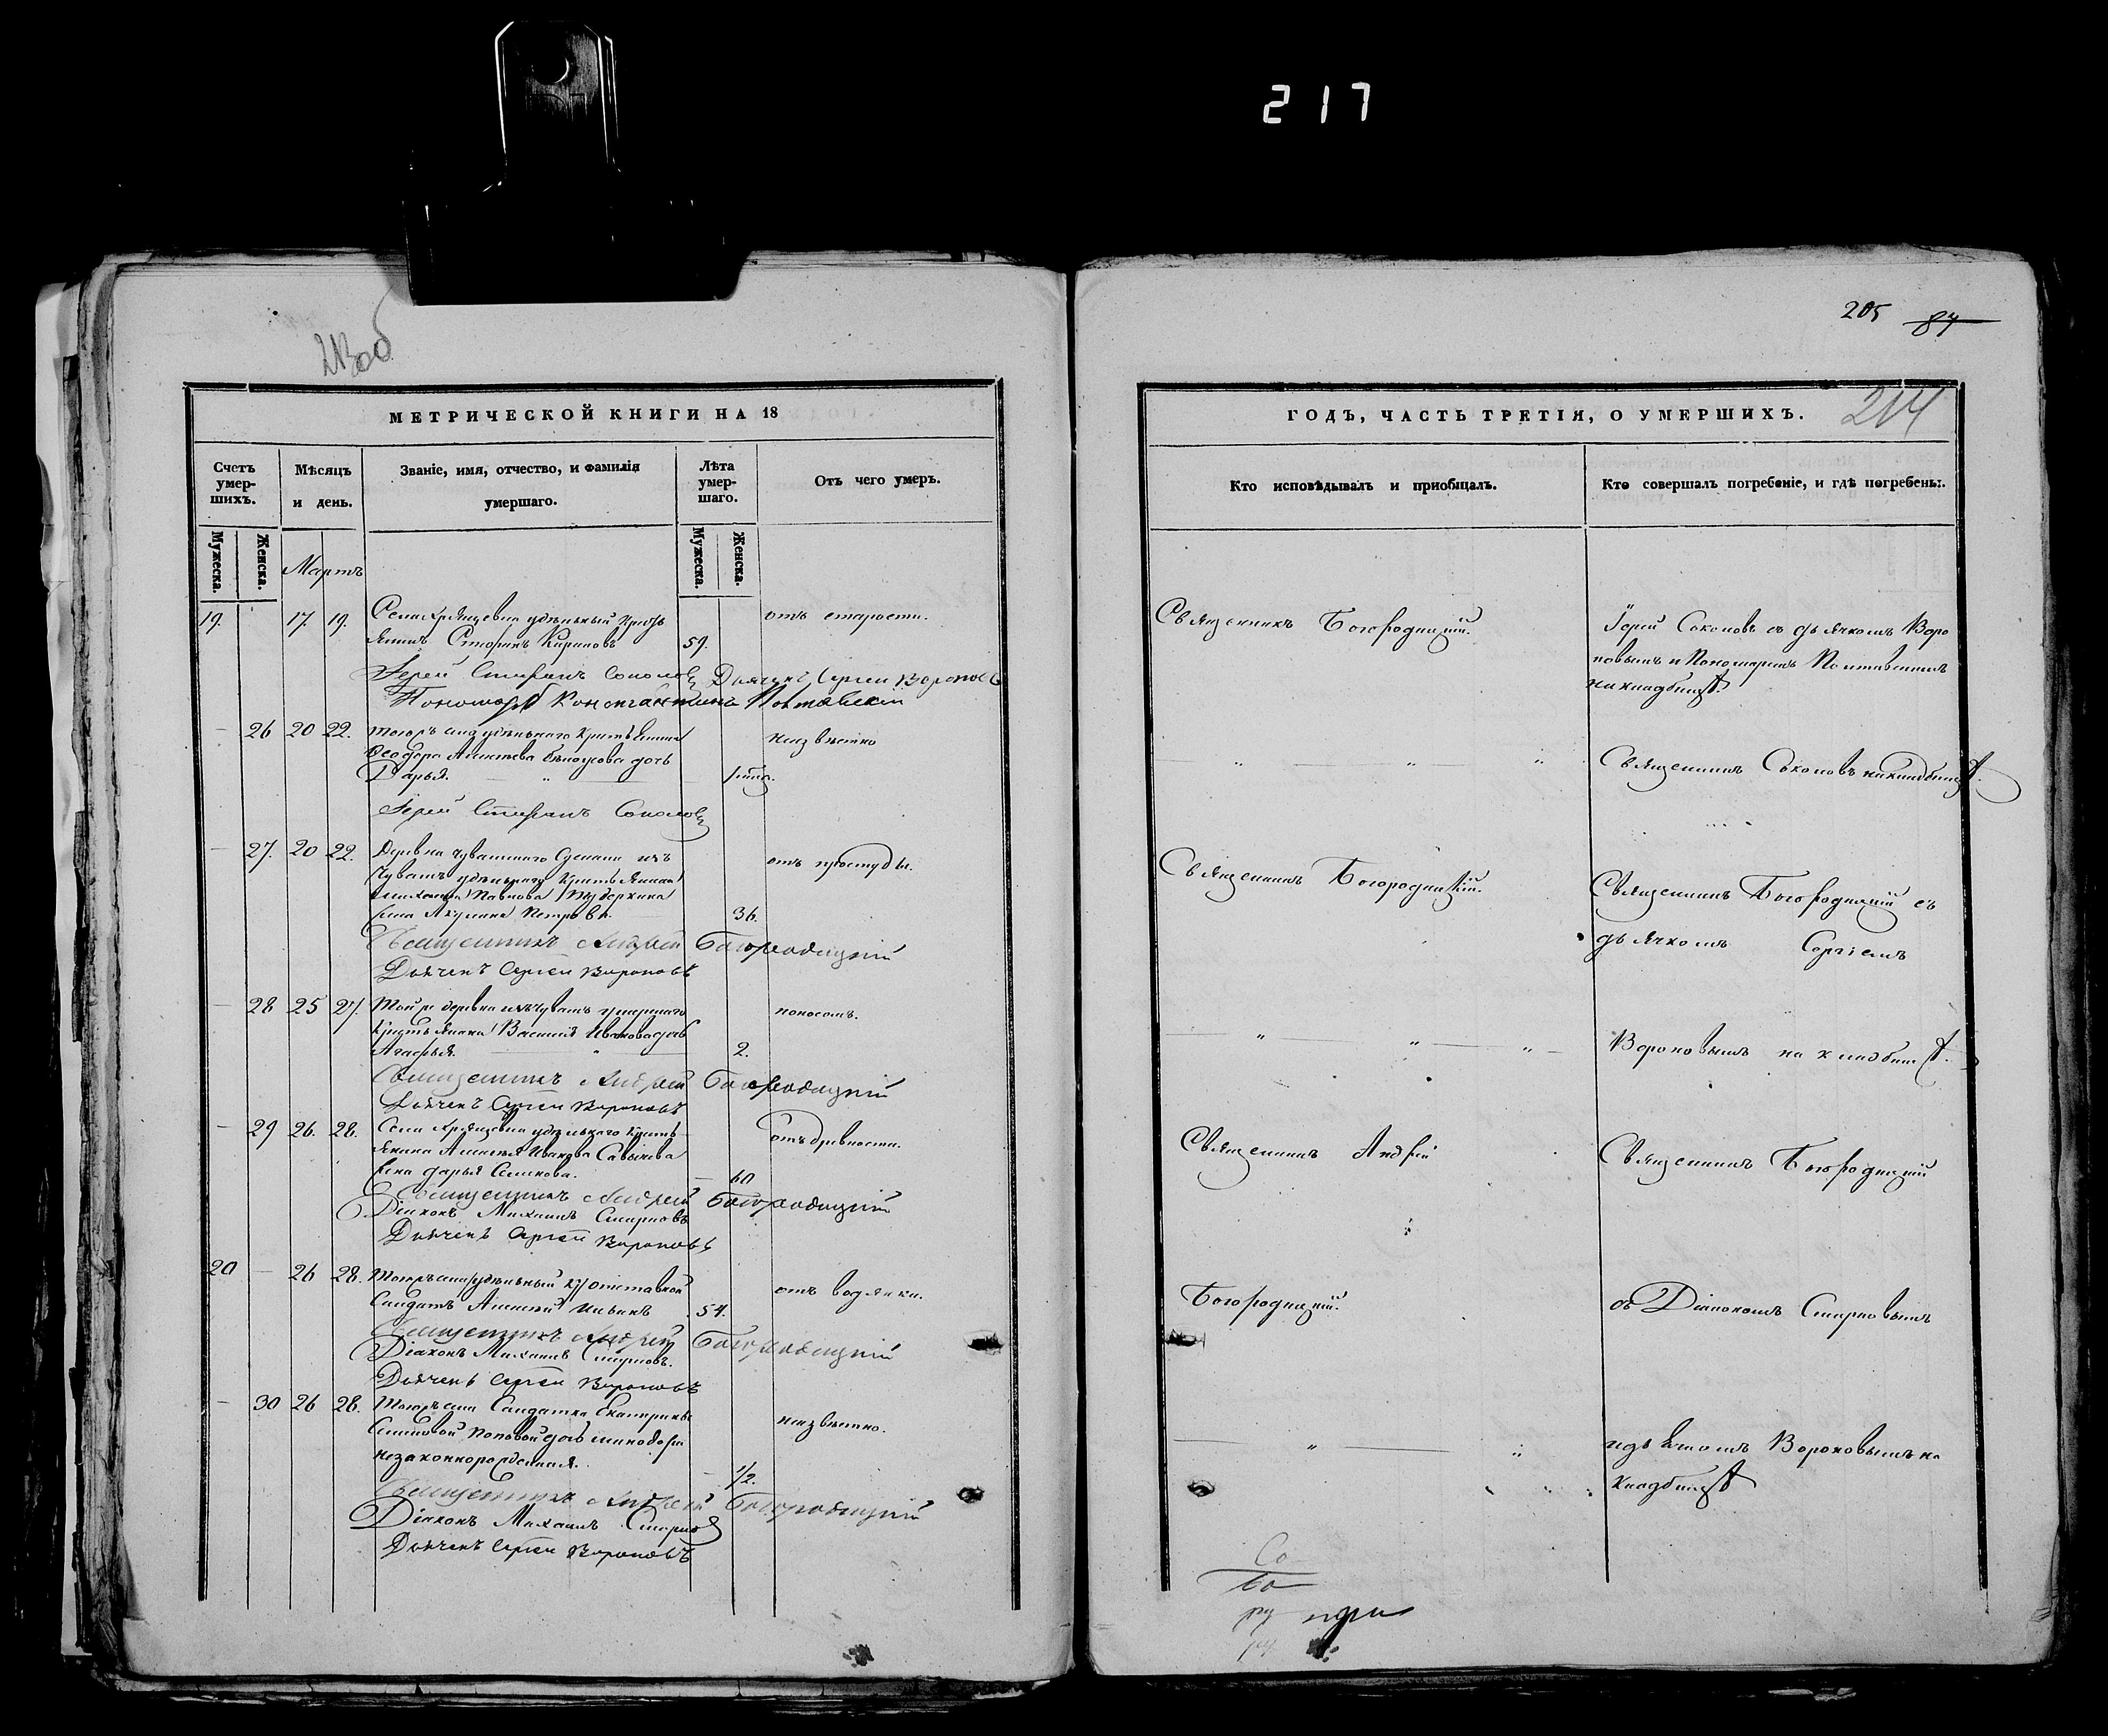 217
213 об
МЕТРИЧЕСКОЙ КНИГИ НА 18
Счетъ умер-шихъ.
Мѣсяцъ и день.
Званіе, имя, отчество, и фамилія умершаго.
Лѣта умер-шаго.
Отъ чего умеръ.
Мужеска.
Женска.
Мужеска.
Женска.
Мартъ
19. 17. 19. Села Хрящевки удѣльный кресть
янинъ Стефанъ Кириловъ 59. отъ старости.
Іерей Стефанъ Соколовъ Дьячекъ Сергей Вороновъ
Пономарь Константинъ Полтавскій
— 26 20 22. того же села удѣльнаго крестьянина неизвѣстно
Ѳеодора Алексѣева дочь
Дарья. 1
Іерей Стефанъ Соколовъ
— 27. 20 22. Деревни изъ отъ простуды.
Чувашъ удѣльнаго крестьянина
Павлова
жена Акулина Петрова. 36.
Священникъ Андрей Богородицкій
Дьячекъ Сергей Вороновъ
— 28 25 27. Той же деревни изъ чувашъ умершаго поносомъ.
крестьянина Василія Иванова дочь
Агафья. 2.
Священникъ Андрей Богородицкій
Дьячекъ Сергей Вороновъ
— 29 26. 28. Села Хрящевки удѣльнаго кресть- отъ древности.
янина Алексѣя Иванова
жена Дарья Семенова. 60
Священникъ Андрей Богородицкій
Діаконъ Михаилъ Смирновъ
Дьячекъ Сергей Вороновъ
20 — 26 28. Того же села удѣльный отставной отъ водянки.
Солдатъ Алексѣй Ильинъ 54.
Священникъ Андрей Богородицкій
Діаконъ Михаилъ Смирновъ.
Дьячекъ Сергей Вороновъ
— 30 26 28. Того же села Солдатки Екатерины неизвѣстно.
Поповой дочь
незаконнорожденная. 1/2.
Священникъ Андрей Богородицкій
Діаконъ Михаилъ Смирновъ
Дьячекъ Сергей Вороновъ
205 87
214
ГОДЪ, ЧАСТЬ ТРЕТІЯ, О УМЕРШИХЪ.
Кто исповѣдывалъ и пріобщалъ.
Кто совершалъ погребеніе, и гдѣ погребены.
Священникъ Богородицкій.
Іерей Соколовъ съ дьячкомъ Воро
новымъ и Пономаремъ Полтавскимъ
на кладбищѣ.
Священникъ Соколовъ на кладбищѣ.
Священникъ Богородицкій.
Священникъ Богородицкій съ
дьячкомъ Сергіемъ
Вороновымъ на кладбищѣ.
Священникъ Андрей
Священникъ Богородицкій
Богородицкій.
съ Діакономъ Смирновымъ
и дьячкомъ Вороновымъ на
кладбищѣ
Со